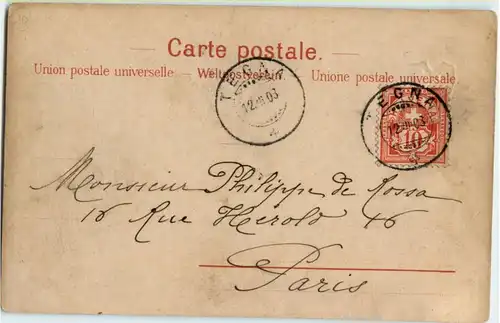 Carte postale.
Union postale universelle — Weltpostverein — Unione postale universale.
TEGNA
12.III.03
TEGNA
12.III.03
10
Monsieur Philippe de Rossa
16 Rue Hérold 46
Paris